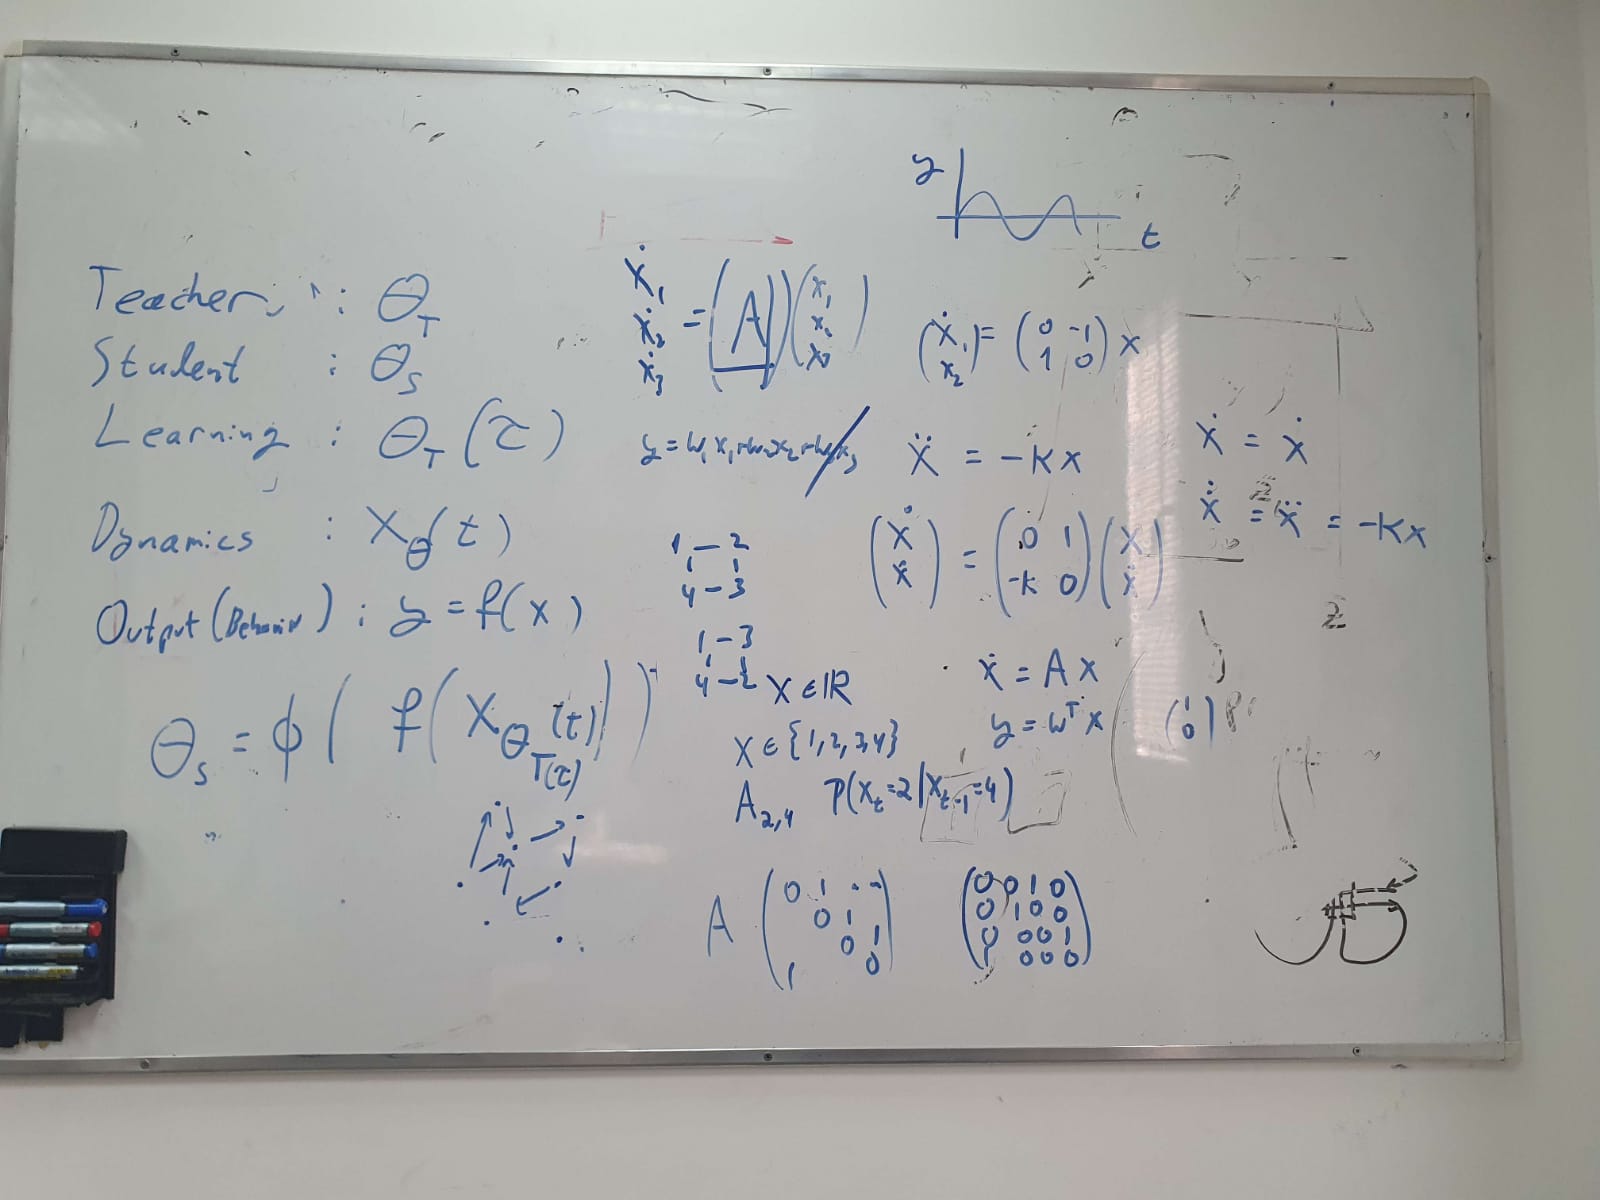 Teacher : θ_T
Student : θ_S
Learning : θ_T(τ)
Dynamics : X_θ(t)
Output (Behavior) : y = f(x)
θ_S = φ( f( X_θ_T(τ) (t) ) )
ẋ₁
ẋ₂ = (A) (x₁
ẋ₃
y = w₁x₁+w₂x₂+w₃x₃
1 — 2
4 — 3
1 — 3
4 — 2
x ∈ ℝ
x ∈ {1,2,3,4}
A₂,₄ P(x_t=2|x_t-1=4)
A ( 0 1 ..
0 1
0 1
1 0 )
( 0 0 1 0
0 1 0 0
0 0 0 1
1 0 0 0 )
y
t
(ẋ₁ = (0 -1
x₂) 1 0) x
ẍ = -kx
(ẋ = (0 1 (x
-k 0) ẋ)
ẋ = Ax
y = wᵀx
(1
0)
ẋ = ẋ
= ẍ = -kx
2